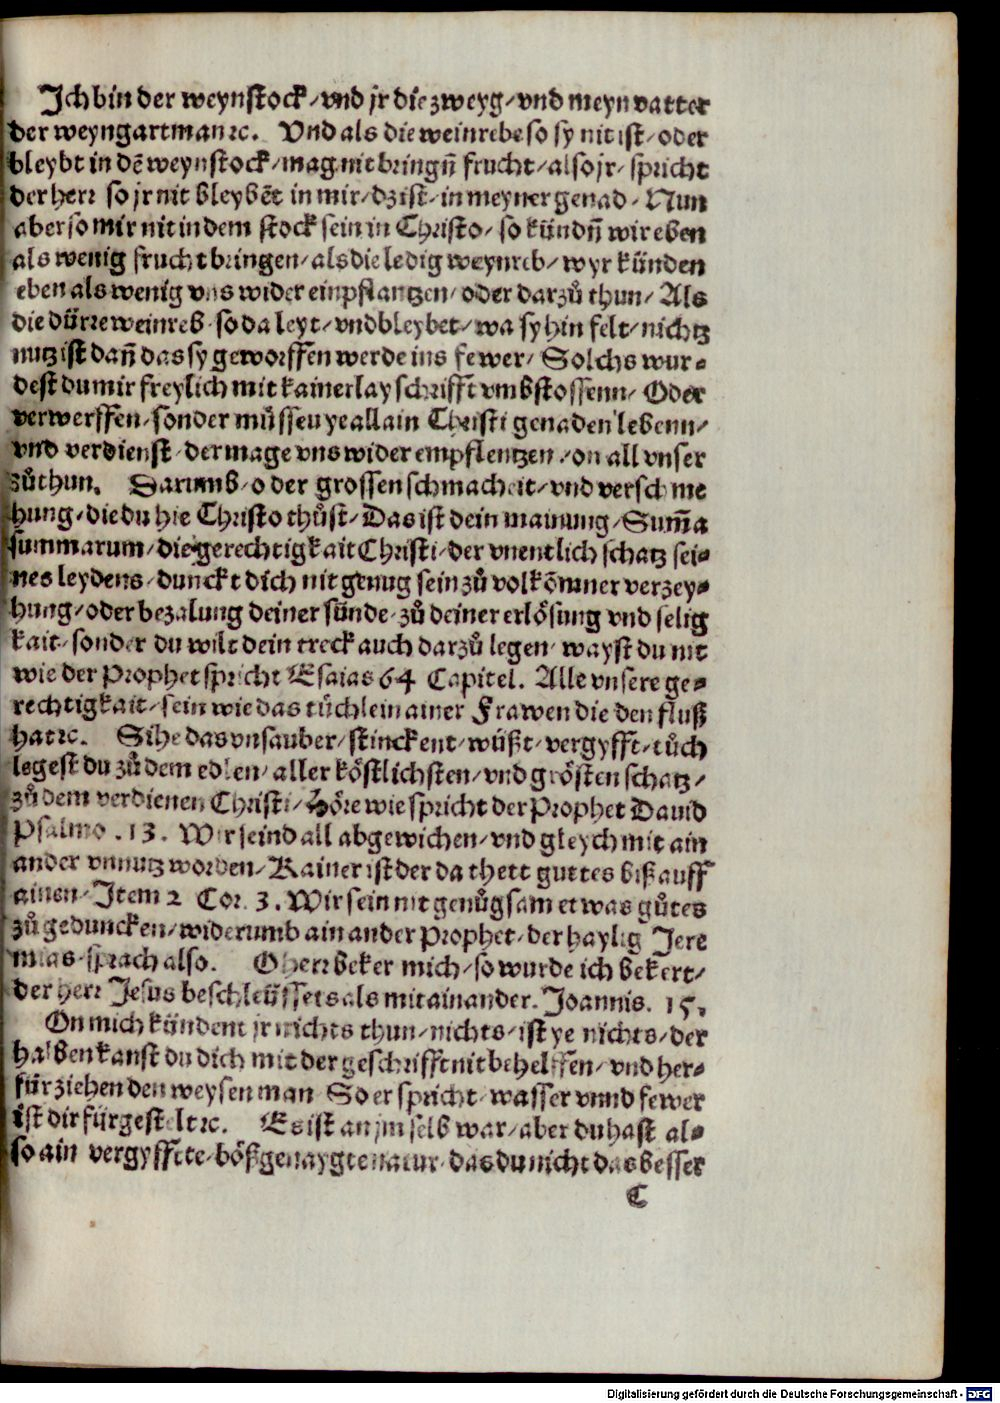 Ich bin der weynstock/vnd jr die zweyg/vnd meyn vatter
der weyngartman ꝛc. Vnd als die weinrebe so sy nit ist/oder
bleybt in dē weynstock/mag nit bringn̄ frucht/also jr/spricht
der herr so jr nit bleybēt in mir/dz ist/in meyner genad/Nun
aber so mir nit in dem stock sein in Christo/so kündn̄ wir eben
als wenig frucht bringen/als die ledig weynreb/wyr künden
eben als wenig vns wider einpflantzen/oder darzů thun/Als
die dürre weinreb so da leyt/vnd bleybet/wa sy hin felt/nichtz
nutz ist dan̄ das sy geworffen werde ins fewer/Solchs wur⸗
dest du mir freylich mit kainerlay schrifft vmbstossenn/Oder
verwerffen/sonder müssen ye allain Christi genaden lebenn/
vnd verdienst/der mage vns wider empflentzen/on all vnser
zůthun. Darumb/o der grossen schmacheit/vnd verschme
hung/die du hie Christo thůst/Das ist dein mainung/Sum̄a
summarum/die gerechtigkait Christi/der vnentlich schatz sei⸗
nes leydens/dunckt dich nit genug sein zů volkōmner verzey⸗
hung/oder bezalung deiner sünde/zů deiner erlösung vnd selig
kait/sonder du wilt dein treck auch darzů legen/wayst du nit
wie der Prophet spricht Esaias 64 Capitel. Alle vnsere ge⸗
rechtigkait/sein wie das tüchlein ainer Frawen die den fluß
hat ꝛc. Sihe das vnsauber/stinckent/wüßt/vergyfft/tůch
legest du zů dem edlen/aller köstlichsten/vnd grösten schatz/
zů dem verdienen Christi/Höre wie spricht der Prophet Dauid
Psalmo .13. Wir seind all abgewichen/vnd gleych mit ain
ander vnnutz worden/Kainer ist der da thett guttes biß auff
ainen/Item 2 Cor. 3. Wir sein nit genůgsam etwas gůtes
zů geduncken/widerumb ain ander Prophet/der haylig Jere
mias sprach also. O herr beker mich/so wurde ich bekert/
der herr Jesus beschleüssets als mitainander. Joannis. 15.
On mich kündent jr nichts thun/nichts/ist ye nichts/der
halben kanst du dich mit der geschrifft nit behelffen/vnd her⸗
für ziehen den weysen man So er spricht/wasser vnnd fewer
ist dir fürgestelt ꝛc. Es ist an jm selb war/aber du hast al⸗
so ain vergyffte/böß genaygte natur/das du nicht das besser
C
Digitalisierung gefördert durch die Deutsche Forschungsgemeinschaft - DFG